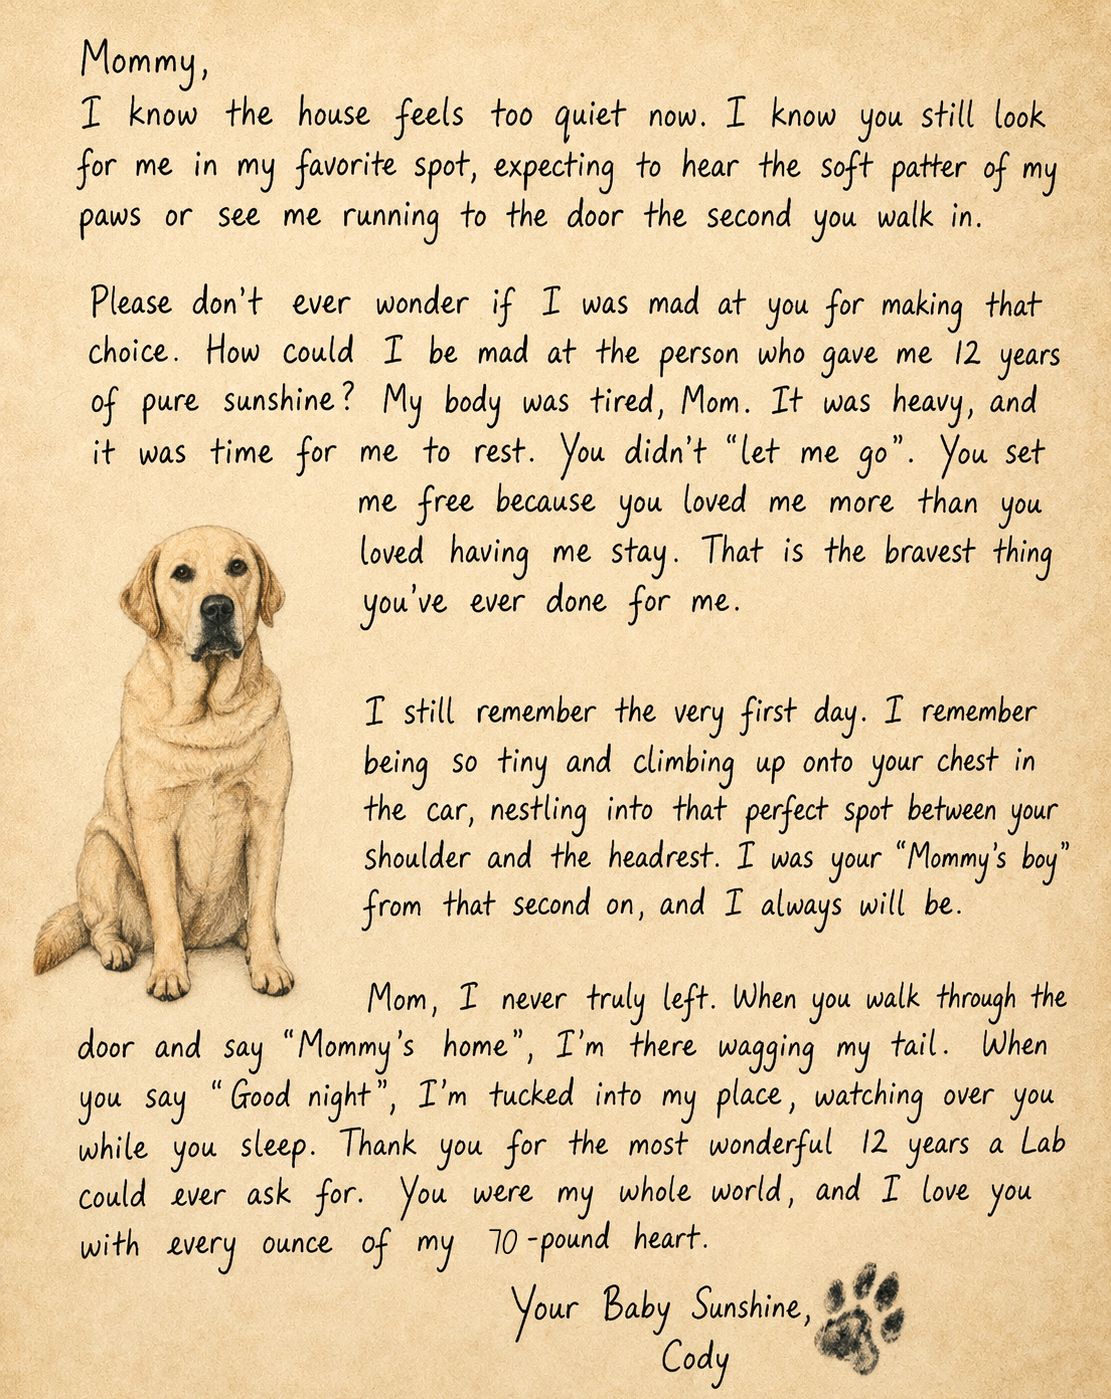 Mommy,
I know the house feels too quiet now. I know you still look
for me in my favorite spot, expecting to hear the soft patter of my
paws or see me running to the door the second you walk in.
Please don't ever wonder if I was mad at you for making that
choice. How could I be mad at the person who gave me 12 years
of pure sunshine? My body was tired, Mom. It was heavy, and
it was time for me to rest. You didn't "let me go". You set
me free because you loved me more than you
loved having me stay. That is the bravest thing
you've ever done for me.
I still remember the very first day. I remember
being so tiny and climbing up onto your chest in
the car, nestling into that perfect spot between your
shoulder and the headrest. I was your "Mommy's boy"
from that second on, and I always will be.
Mom, I never truly left. When you walk through the
door and say "Mommy's home", I'm there wagging my tail. When
you say "Good night", I'm tucked into my place, watching over you
while you sleep. Thank you for the most wonderful 12 years a Lab
could ever ask for. You were my whole world, and I love you
with every ounce of my 70-pound heart.
Your Baby Sunshine,
Cody